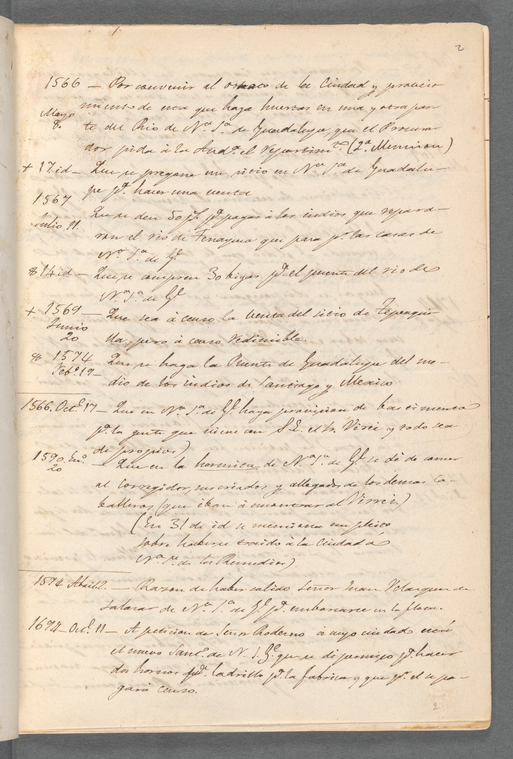 2
1566 — Por convenir al ornato de la Ciudad y
Mayo miento de esta que haya huertas en una y otra par-
8. te del Rio de N.ª S.ª de Guadalupe, que el Procura-
dor pida á la Aud.ª el (2.ª Mencion)
+ 17 id — Que se pregone un sitio en N.ª S.ª de Guadalu-
pe p.ª hacer una venta
1567 Que se den 50 p.s p.ª pagar á los indios que repara-
Julio 11. ron el rio de Tenayuca que pasa p.r las casas de
N.ª S.ª de G.e
8 14 id — Que se compren 30 bigas p.ª el puente del rio de
N.ª S.ª de G.e
+ 1569 — Que sea á censo la venta del sitio de Tepeaqui-
Junio lla, pero á censo redimible.
20
8 1574 — Que se haga la Puente de Guadalupe del me-
Feb.o 19 — dio de los indios de Santiago y Mexico
1566. Oct.e 17 — Que en N.ª S.ª de G.e haya provision de bastimentos
p.ª la gente que viene con S.E. el Sr. Virei y todo sea
de propios)
1590. En.o — Que en la hermita de N.ª S.ª de G.e se dé de comer
20 al Corregidor, sus criados y allegados, y los demas Ca-
balleros (que iban á encontrar al Virrei)
(En 31 de id se menciona un pleito
sobre haberse traido á la Ciudad á
N.ª S.ª de los Remedios)
1594 Abril 2. — Razon de haber salido Señor Juan Velazquez de
Salazar de N.ª S.ª de G.e p.ª embarcarse en la flota.
1694 — Oct.e 11 — A peticion de Señor á cuyo cuidado está
el nuevo Sant.o de N. S. G.e que se dé permiso p.ª hacer
dos hornos p.ª ladrillo p.ª la fabrica, y que p.r el se pa-
gará censo.
2